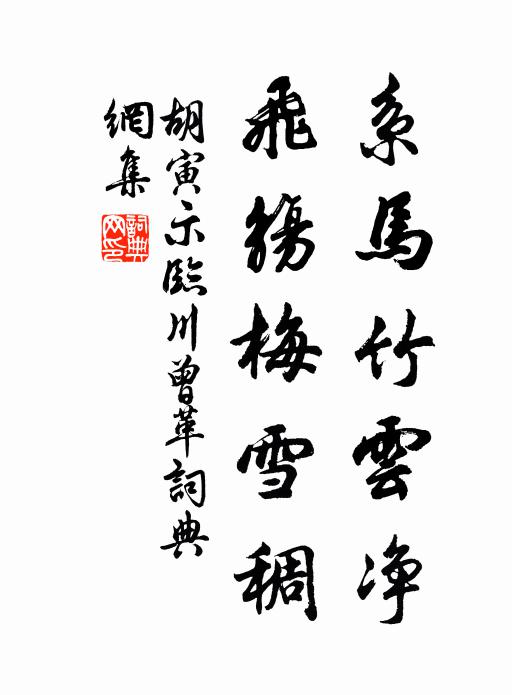 系馬竹雲淨
飛觴梅雪稠
胡寅示臨川曾革詞典
網集
詞典
网印